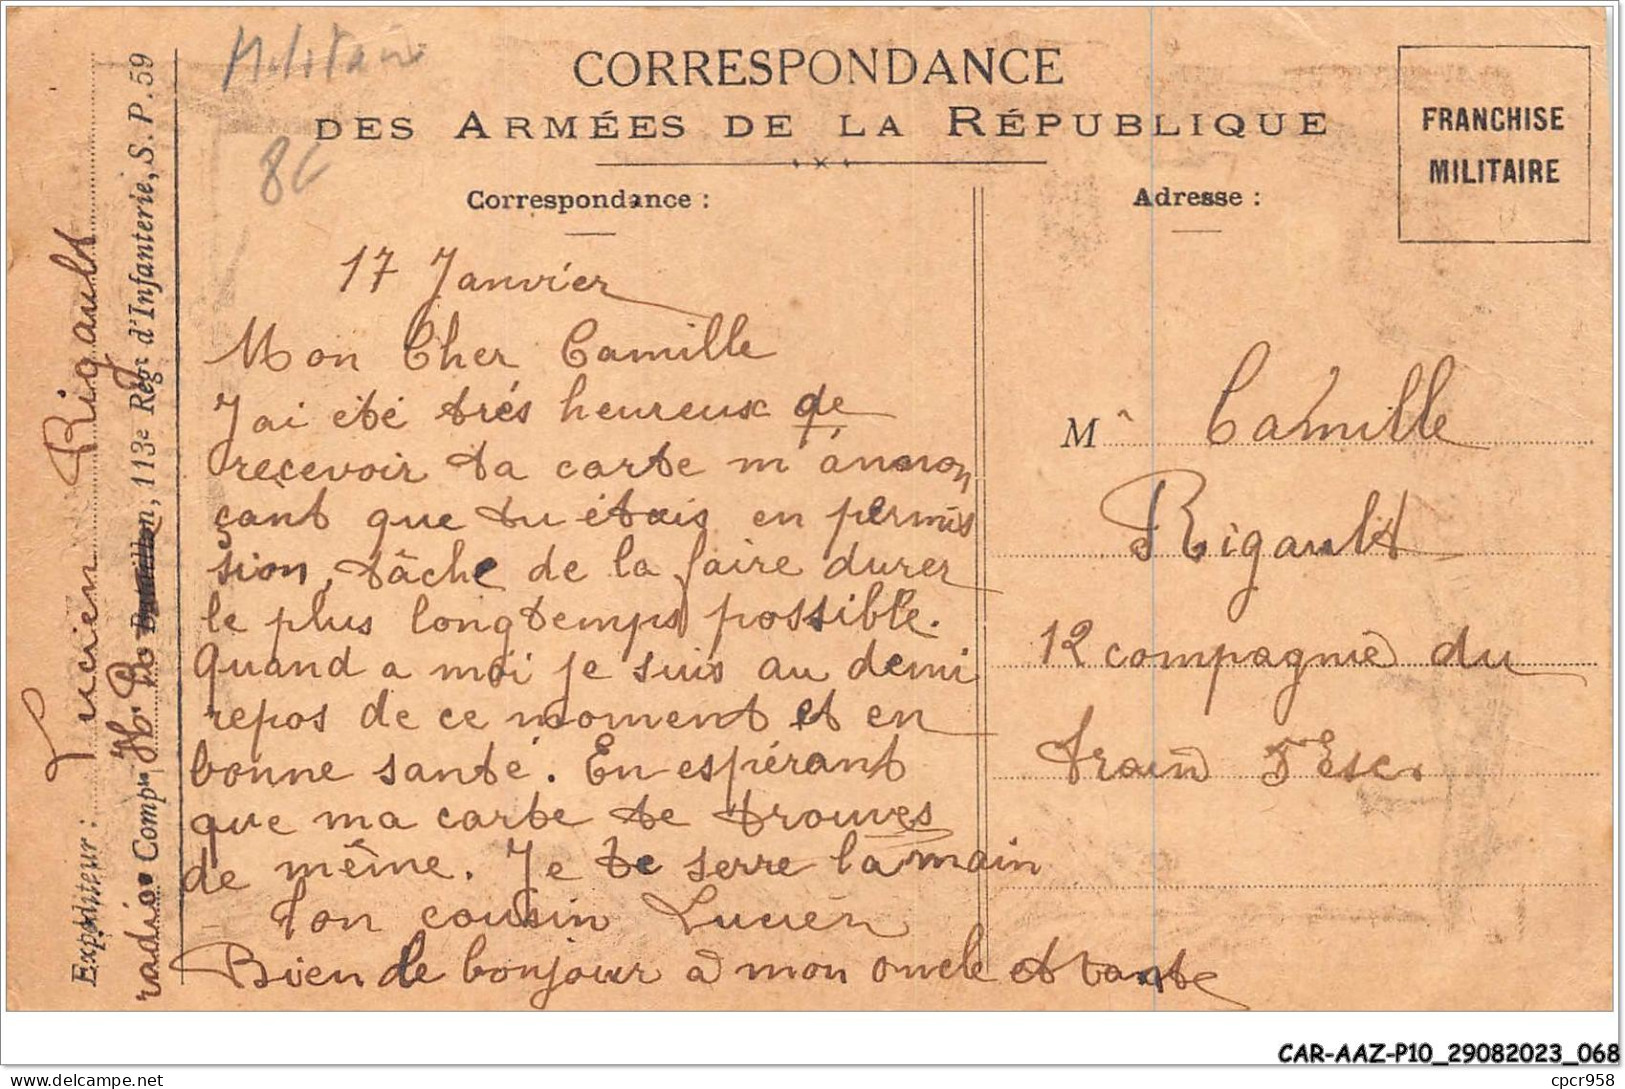 Militaire
8€
CORRESPONDANCE
DES ARMÉES DE LA RÉPUBLIQUE
FRANCHISE
MILITAIRE
Correspondance :
17 Janvier
Mon Cher Camille
J'ai été très heureux de
recevoir ta carte m'annon
çant que tu étais en permis
sion, tâche de la faire durer
le plus longtemps possible.
Quand a moi je suis au demi
repos de ce moment et en
bonne santé. En espérant
que ma carte te trouves
de même. Je te serre la main
Ton cousin Lucien
Bien le bonjour à mon oncle et tante
Adresse :
M Camille
Rigault
12 compagnie du
train d'Esc.
Expéditeur : Lucien Rigault
radio Comp H.R. Bataillon, 113e Régt d'Infanterie, S. P. 59
CAR-AAZ-P10_29082023_068
delcampe.net
cpcr958